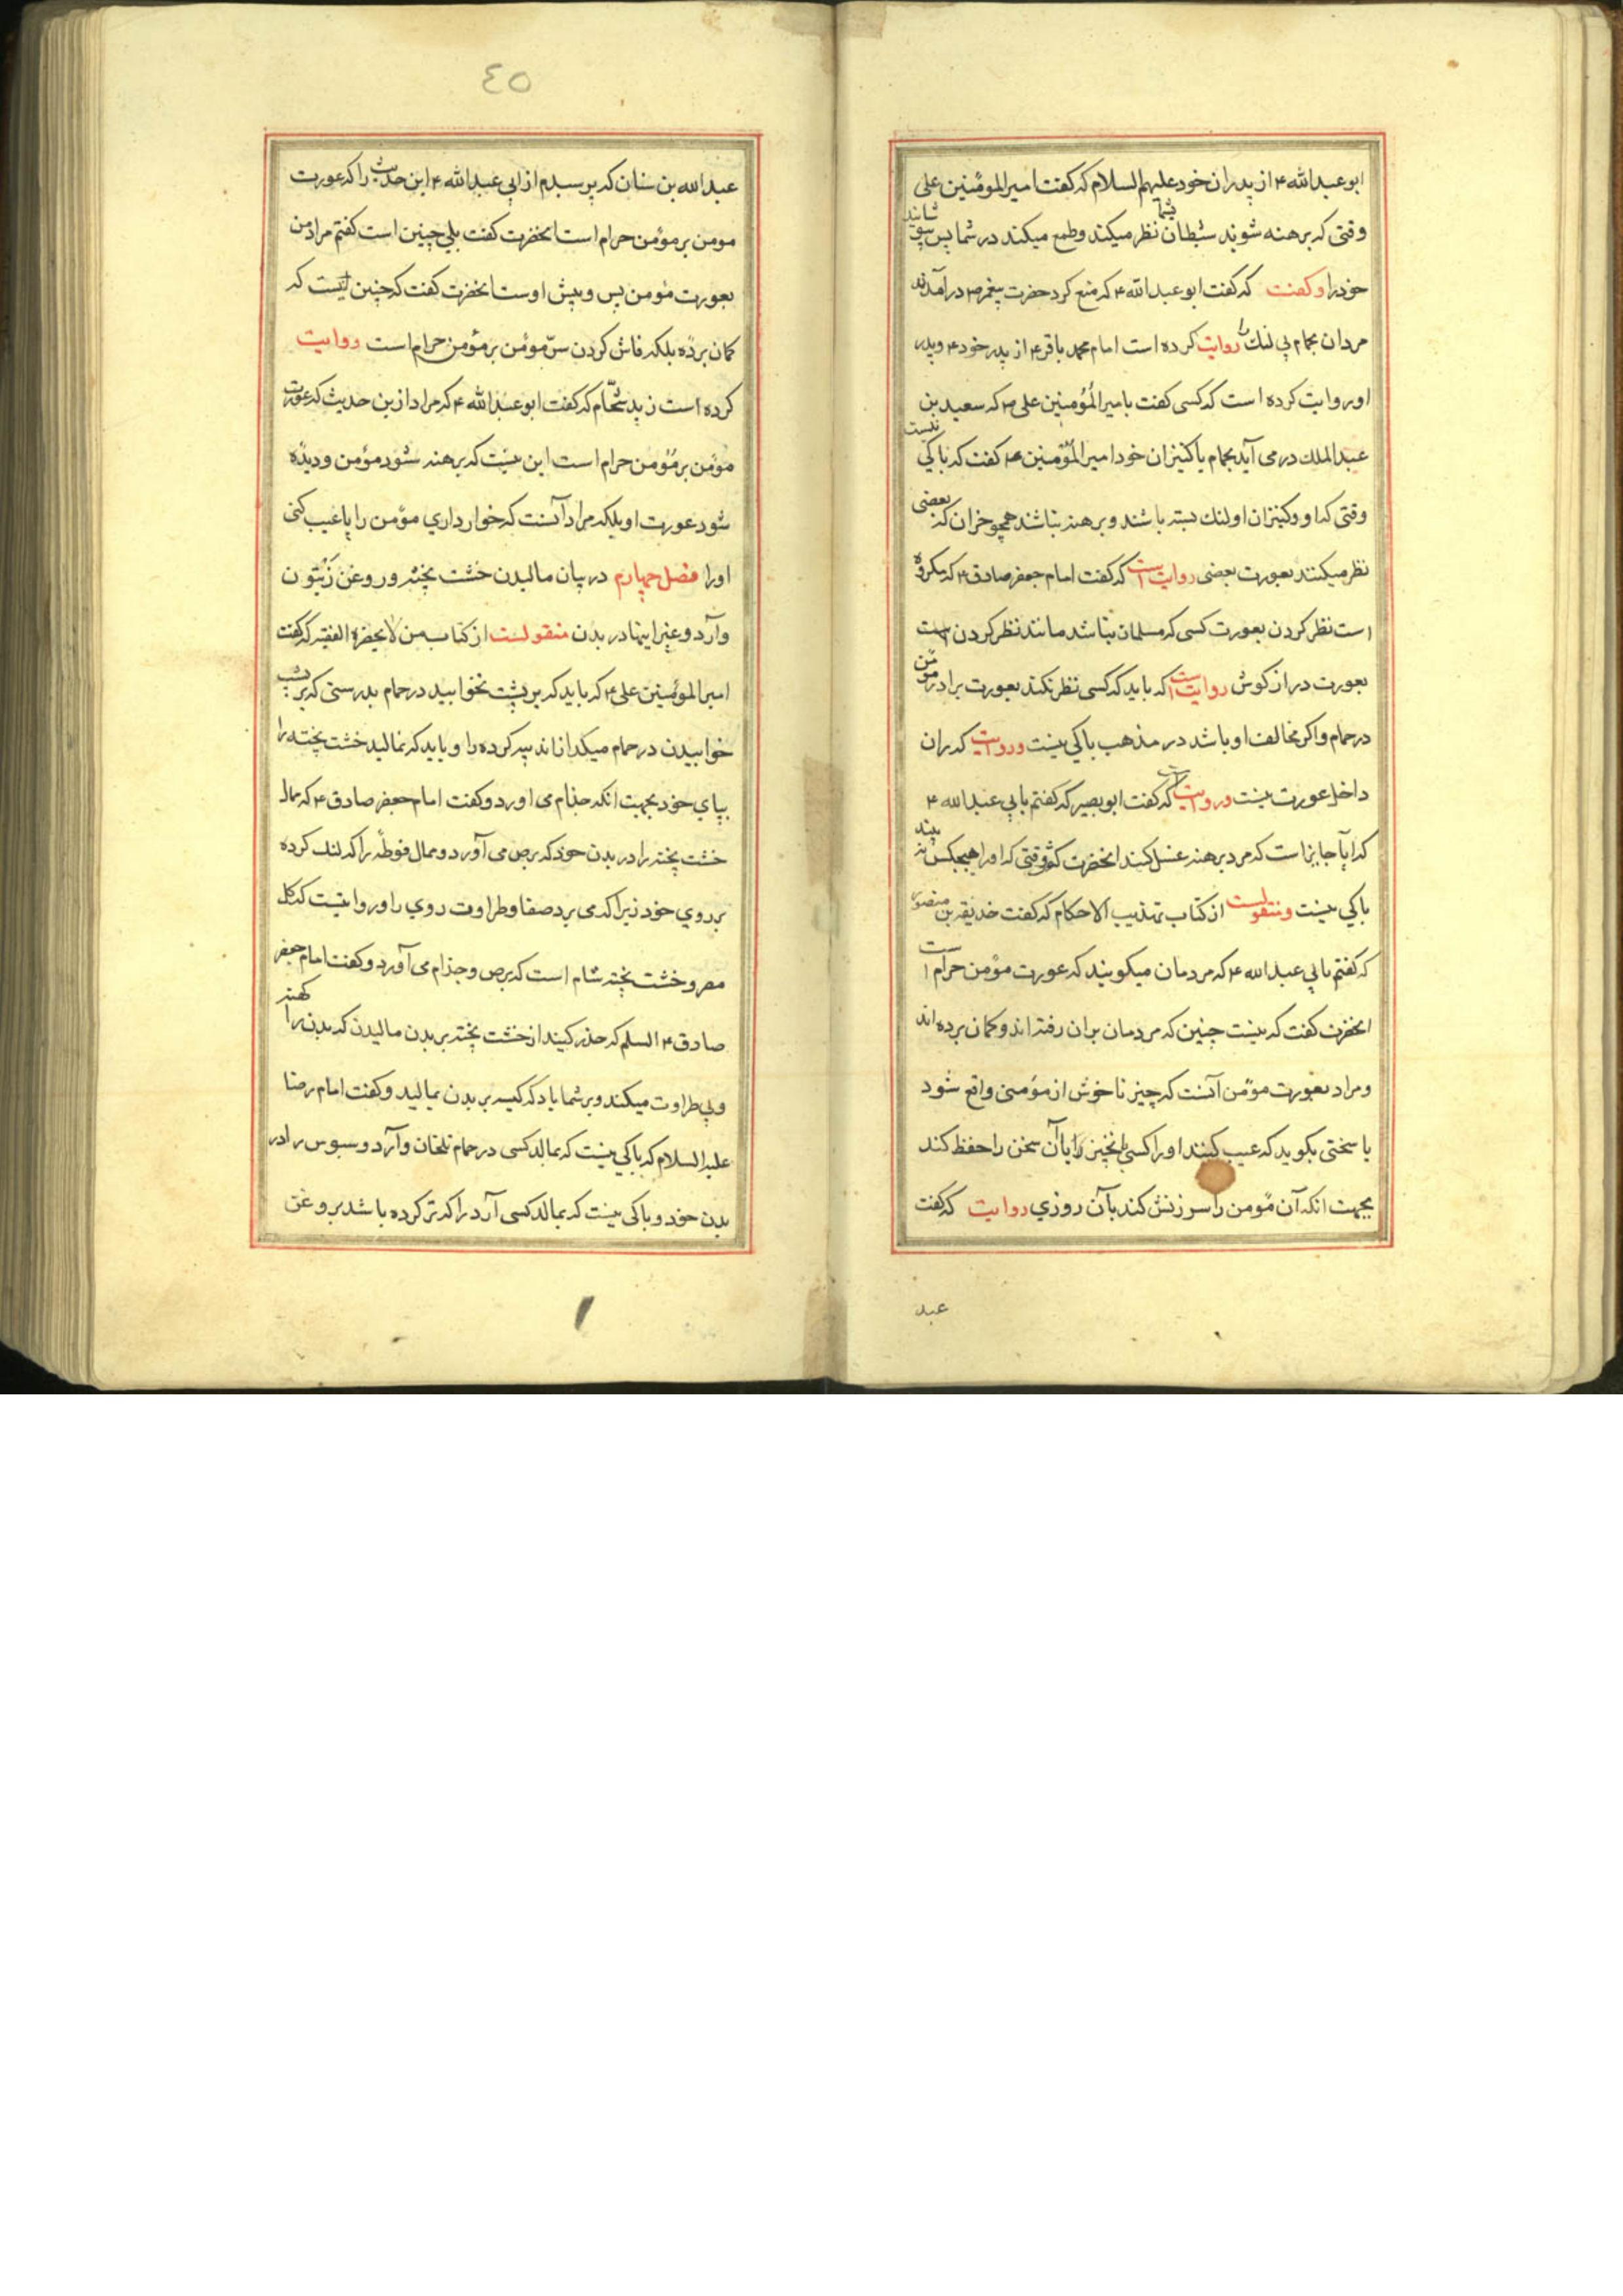 ابوعبدالله ۴ از پدران خود علیهم السلام که کفت امیرالمومنین علی
وقتی که برهنه شوید شیطان بشما نظر میکند وطمع میکند در شما پس بپوشانید
خود را وکفت که کفت ابوعبدالله ۴ که منع کرد حضرت پیغمبر ص درآمدن
مردان بحمام بی لنک را روایت کرده است امام محمد باقر ۴ از پدر خود ۴ وپدر
او روایت کرده است که کسی کفت بامیرالمؤمنین علی ۴ که سعید بن
عبدالملک درمی آید بحمام باکنیزان خود امیرالمؤمنین ۴ کفت که باکی نیست
وقتی که او وکنیزان او لنک بسته باشند وبرهنه نباشند همچو خران که بعضی
نظر میکنند بعورت بعضی روایت است که کفت امام جعفر صادق ۴ که مکروه
است نظر کردن بعورت کسی که مسلمان نباشد مانند نظر کردن است
بعورت دراز کوش روایت است که باید که کسی نظر نکند بعورت برادر مؤمن
درحمام واکر مخالف او باشد در مذهب باکی نیست وروایت که ران
داخل عورت نیست وروایت است که کفت ابوبصیر که کفتم بابی عبدالله ۴
که ایا جایز است که مرد برهنه غسل کند انحضرت کفت وقتی که اورا هیچکس نه بیند
باکی نیست ومنقولست از کتاب تهذیب الاحکام که کفت حذیفه بن منصور
که کفتم بابی عبدالله ۴ که مردمان میکویند که عورت مؤمن حرام است
انحضرت کفت که نیست چنین که مردمان بران رفته اند وکمان برده اند
ومراد بعورت مؤمن آنست که چیز ناخوش از مؤمنی واقع شود
یا سختی بکوید که عیب کنند اورا کسی انچیز را یا آن سخن را حفظ کند
بجهت انکه آن مؤمن را سرزنش کند بآن روزی روایت که کفت
عبد
٤٥
عبدالله بن سنان که پرسیدم از ابی عبدالله ۴ این حدیث را که عورت
مومن برمؤمن حرام است انحضرت کفت بلی چنین است کفتم مراد من
بعورت مؤمن پس وپیش اوست انحضرت کفت که چنین نیست که
کمان برده بلکه فاش کردن سرّ مؤمن برمؤمن حرام است روایت
کرده است زید شحّام که کفت ابوعبدالله ۴ که مراد ازین حدیث که عورت
مؤمن برمؤمن حرام است این نیست که برهنه شود مؤمن ودیده
شود عورت او بلکه مراد آنست که خوار داری مؤمن را یا عیب کنی
اورا فصل چهارم در بیان مالیدن خشت پخته وروغن زیتون
وآرد وغیر اینها در بدن منقولست از کتاب من لایحضره الفقیه که کفت
امیرالمؤمنین علی ۴ که باید که برپشت نخوابید درحمام بدرستی که برپشت
خوابیدن درحمام میکدازاند پیه کرده را وباید که نمالید خشت پخته را
بپای خود بجهت انکه جذام می اورد وکفت امام جعفر صادق ۴ که ممال
خشت پخته را در بدن خود که برص می آورد وممال فوطه را که لنک کرده
برروی خود زیرا که می برد صفا وطراوت روی را وروایتیست که کل
مصر وخشت پخته شام است که برص وجذام می آورد وکفت امام جعفر
صادق ۴ السلم که حذر کنید از خشت پخته بربدن مالیدن که بدن را کهنه
وبی طراوت میکند وبرشما باد که کیسه بربدن بمالید وکفت امام رضا
علیه السلام که باکی نیست که بمالد کسی درحمام تلخان وآرد وسبوس را در
بدن خود وباکی نیست که بمالد کسی آرد را که ترکرده باشد بروغن